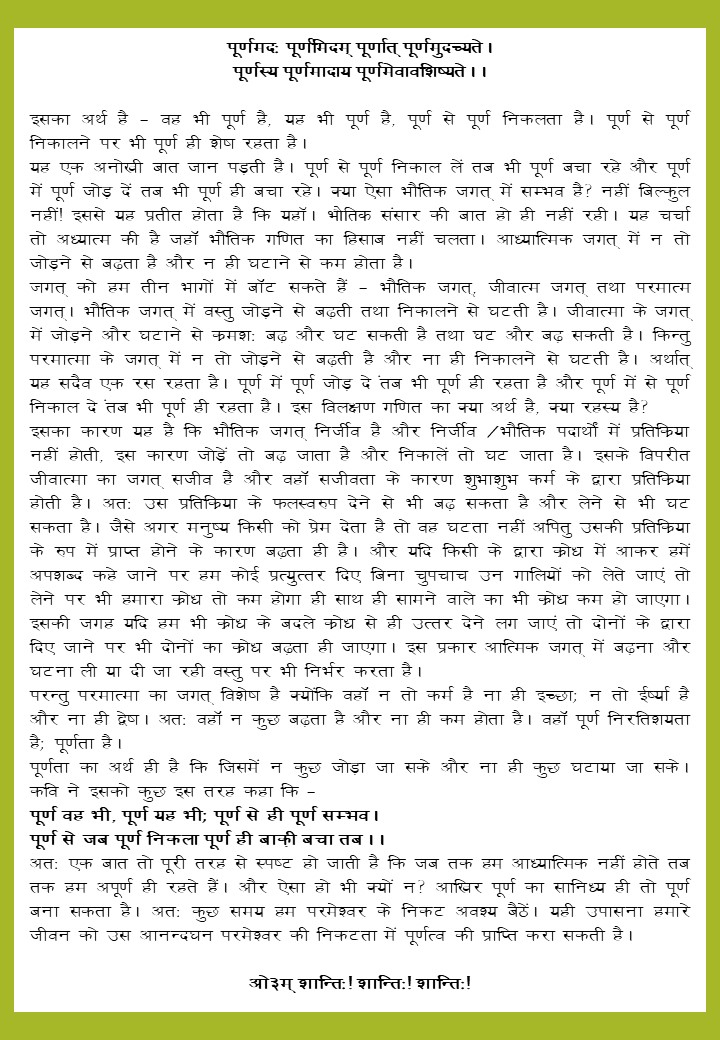 पूर्णमदः पूर्णमिदम् पूर्णात् पूर्णमुदच्यते।
पूर्णस्य पूर्णमादाय पूर्णमिवावशिष्यते।।
इसका अर्थ है – वह भी पूर्ण है, यह भी पूर्ण है, पूर्ण से पूर्ण निकलता है। पूर्ण से पूर्ण
निकालने पर भी पूर्ण ही शेष रहता है।
यह एक अनोखी बात जान पड़ती है। पूर्ण से पूर्ण निकाल लें तब भी पूर्ण बचा रहे और पूर्ण
में पूर्ण जोड़ दें तब भी पूर्ण ही बचा रहे। क्या ऐसा भौतिक जगत् में सम्भव है? नहीं बिल्कुल
नहीं! इससे यह प्रतीत होता है कि यहॉ। भौतिक संसार की बात हो ही नहीं रही। यह चर्चा
तो अध्यात्म की है जहॉ भौतिक गणित का हिसाब नहीं चलता। आध्यात्मिक जगत् में न तो
जोड़ने से बढ़ता है और न ही घटाने से कम होता है।
जगत् को हम तीन भागों में बॉट सकते हैं – भौतिक जगत्, जीवात्म जगत् तथा परमात्म
जगत्। भौतिक जगत् में वस्तु जोड़ने से बढ़ती तथा निकालने से घटती है। जीवात्मा के जगत्
में जोड़ने और घटाने से कमशः बढ़ और घट सकती है तथा घट और बढ़ सकती है। किन्तु
परमात्मा के जगत् में न तो जोड़ने से बढ़ती है और ना ही निकालने से घटती है। अर्थात्
यह सदैव एक रस रहता है। पूर्ण में पूर्ण जोड़ दे ंतब भी पूर्ण ही रहता है और पूर्ण में से पूर्ण
निकाल दे ंतब भी पूर्ण ही रहता है। इस विलक्षण गणित का क्या अर्थ है, क्या रहस्य है?
इसका कारण यह है कि भौतिक जगत् निर्जीव है और निर्जीव /भौतिक पदार्थों में प्रतिकिया
नहीं होती, इस कारण जोड़ें तो बढ़ जाता है और निकालें तो घट जाता है। इसके विपरीत
जीवात्मा का जगत् सजीव है और वहॉ सजीवता के कारण शुभाशुभ कर्म के द्वारा प्रतिकिया
होती है। अतः उस प्रतिकिया के फलस्वरुप देने से भी बढ़ सकता है और लेने से भी घट
सकता है। जैसे अगर मनुष्य किसी को प्रेम देता है तो वह घटता नहीं अपितु उसकी प्रतिकिया
के रुप में प्राप्त होने के कारण बढ़ता ही है। और यदि किसी के द्वारा कोध में आकर हमें
अपशब्द कहे जाने पर हम कोई प्रत्युत्तर दिए बिना चुपचाप उन गालियों को लेते जाएं तो
लेने पर भी हमारा कोध तो कम होगा ही साथ ही सामने वाले का भी कोध कम हो जाएगा।
इसकी जगह यदि हम भी कोध के बदले कोध से ही उत्तर देने लग जाएं तो दोनों के द्वारा
दिए जाने पर भी दोनों का कोध बढ़ता ही जाएगा। इस प्रकार आत्मिक जगत् में बढ़ना और
घटना ली या दी जा रही वस्तु पर भी निर्भर करता है।
परन्तु परमात्मा का जगत् विशेष है क्योंकि वहॉ न तो कर्म है ना ही इच्छा; न तो ईर्ष्या है
और ना ही द्वेष। अतः वहॉ न कुछ बढ़ता है और ना ही कम होता है। वहॉ पूर्ण निरतिशयता
है; पूर्णता है।
पूर्णता का अर्थ ही है कि जिसमें न कुछ जोड़ा जा सके और ना ही कुछ घटाया जा सके।
कवि ने इसको कुछ इस तरह कहा कि –
पूर्ण वह भी, पूर्ण यह भी; पूर्ण से ही पूर्ण सम्भव।
पूर्ण से जब पूर्ण निकला पूर्ण ही बाक़ी बचा तब।।
अतः एक बात तो पूरी तरह से स्पष्ट हो जाती है कि जब तक हम आध्यात्मिक नहीं होते तब
तक हम अपूर्ण ही रहते हैं। और ऐसा हो भी क्यों न? आखिर पूर्ण का सानिध्य ही तो पूर्ण
बना सकता है। अतः कुछ समय हम परमेश्वर के निकट अवश्य बैठें। यही उपासना हमारे
जीवन को उस आनन्दघन परमेश्वर की निकटता में पूर्णत्व की प्राप्ति करा सकती है।
ओ३म् शान्तिः! शान्तिः! शान्तिः!